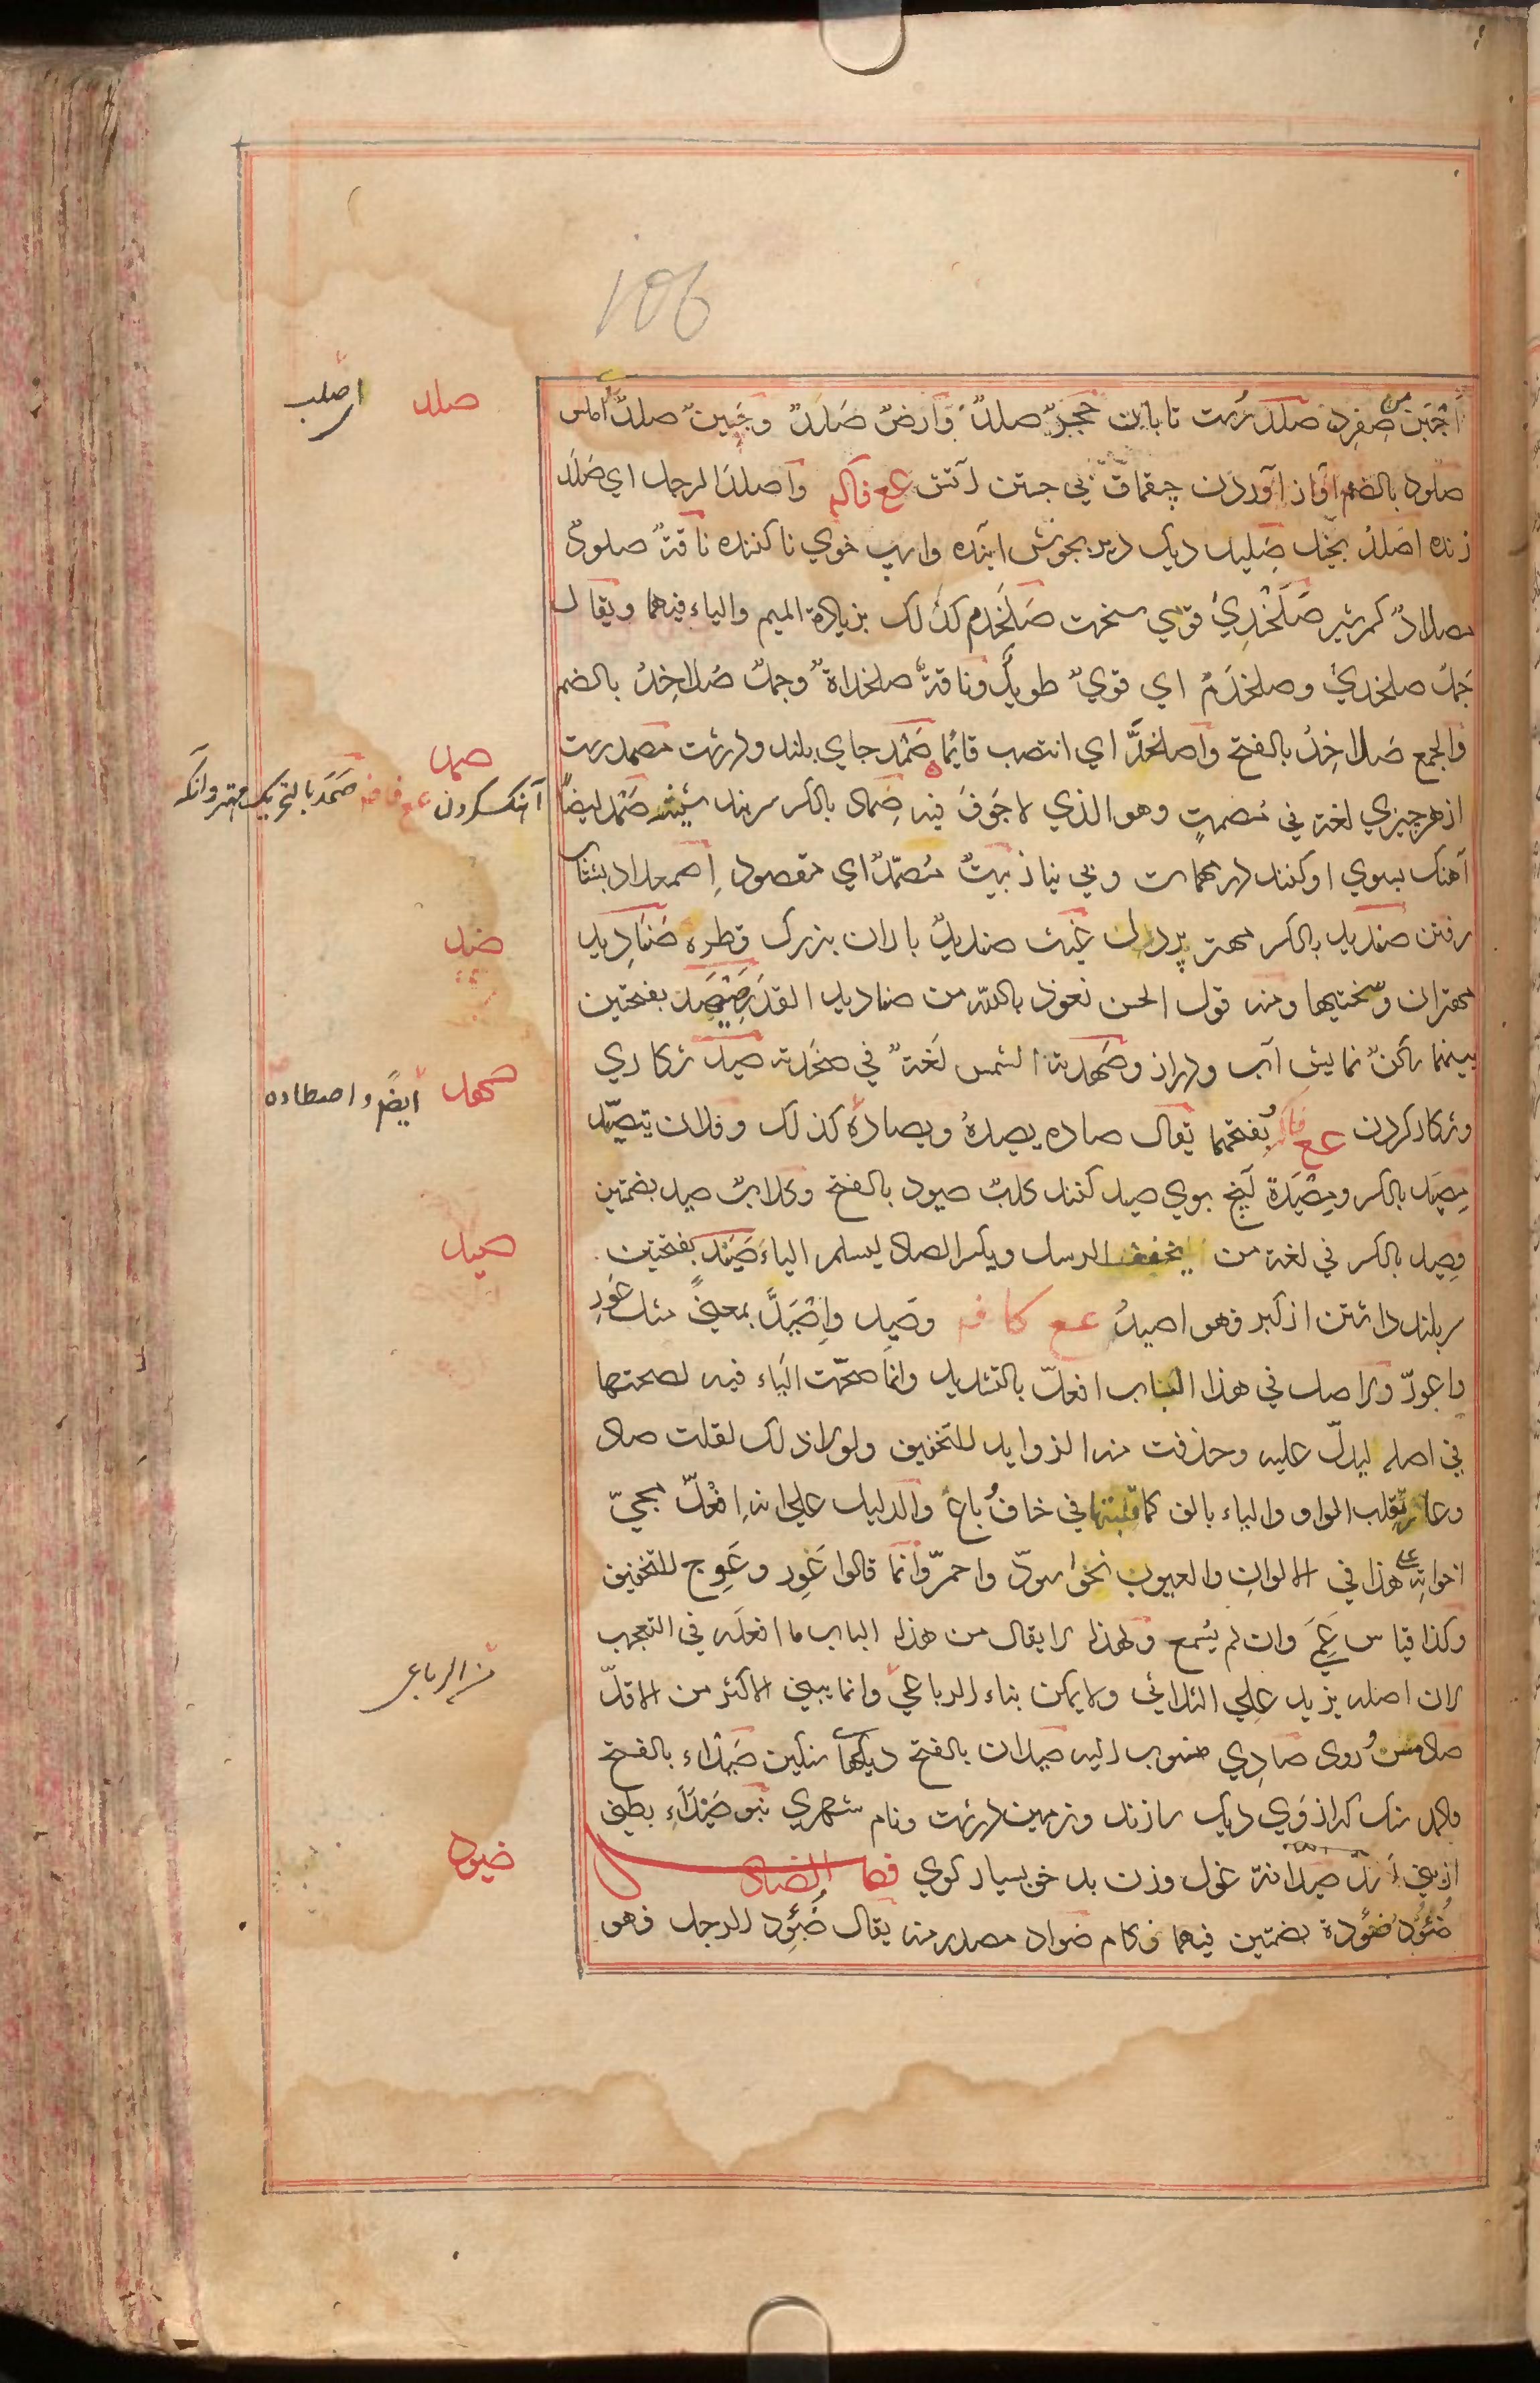 106
صلد
اصلب
صفرد صلد رست تابان حجرٌ صلدٌ وارضٌ صلدٌ وجبينٌ صلدٌ املس
صلود بالضم آواز آوردن چقماق بي جستن آتش عع فاكه واصلد الرجل اي صلد
زنده اصلدُ بخيل صليد ديك دير بجوش آينده واسپ خوي ناكننده ناقةٌ صلودٌ
مصلادٌ كم شير صَلَخْدِيٌ قوي سخت صَلَخْدم كذلك بزيادة الميم والياء فيهما ويقال
جَملٌ صلخديٌ وصلخدَمٌ اي قويٌ طويلٌ وناقةٌ صلخداةٌ وجملٌ صُلاخِدٌ بالضم
والجمع صَلاخِدُ بالفتح واصلخدَّ اي انتصب قايما صَمْد جاي بلند ودرشت مصمد رست
صمد
آهنگ كردن عع فافه صَمَد بالتحريك مهتر وآنكه
از هر چيزي لغة في مُصمتٍ وهو الذي لا جَوفَ فيه صِماد بالكسر سربند شيشه صَمْد ايضاً
آهنك بسوي او كنند در مهمات وبي نياز بيتٌ مُصمّدٌ اي مقصود اصمعداد بشتاب
صند
رفتن صنديد بالكسر مهتر پردل غيث صنديدٌ باران بزرك قطره صَنَادِيد
مهتران وسختيها ومنه قول الحسن نعوذ بالله من صناديد القدر صَيْهَد بفتحتين
صهد
بينماركنٌ نمايش آب ودراز وصَهَدته الشمس لغةٌ في صَخَدته صيد شكاري
ايضً واصطاده
وشكار كردن عع فاكه بفتحهما يقال صاده يصيدهُ ويصادهُ كذلك وفلان يتصيّد
مِصيَد بالكسر ومِصْيَدة آنچ بوي صيد كنند كلبٌ صيود بالفتح وكلابٌ صيد بضمتين
صيد
وصِيد بالكسر في لغة من يخفف الرسل ويكسر الصاد ليسلم الياء صَيَد بفتحتين
سر بلند داشتن از كبر فهو اصيدُ عع كافه وصَيِد واِصْيَدَّ بمعنىً مثل عَوِرَ
واعورّ والاصل في هذا الباب افعلّ بالتشديد وانما صحّت الياء فيه لصحتها
في اصله ليدلّ عليه وحذفت منه الزوايد للتخفيف ولولا ذلك لقلت صاد
وعار تقلب الواو والياء بالف كما قلبتها في خاف وباع والدليل على انه اِفْعلّ مجيّ
اخواته على هذا في الالوان والعيوب نحو اسودّ واحمرّ وانما قالوا عَوِر وعَوِج للتخفيف
وكذا قياس عَمِيَ وان لم يُسمع ولهذا لا يقال من هذا الباب ما افعله في التعجب
من الرباعى
لان اصله يزيد على الثلاثي ولا يمكن بناء الرباعي وانما يبنى الاكثر من الاقلّ
صاد مس وروى صادِي منسوب اليه صيدان بالفتح ديكهاء سنكين صَيْداء بالفتح
والمد سنك كه از وَي ديك سازند وزمين درشت ونام شهري بنو صَيْدَاءِ بطني
ضيود
از بني اسد صيدانة غول وزن بد خو بسيار كوي فصل الضاد
ضُئُودُ ضُؤُدة بضمتين فيهما زكام ضواد مصدر منه يقال ضُئِد الرجل فهو